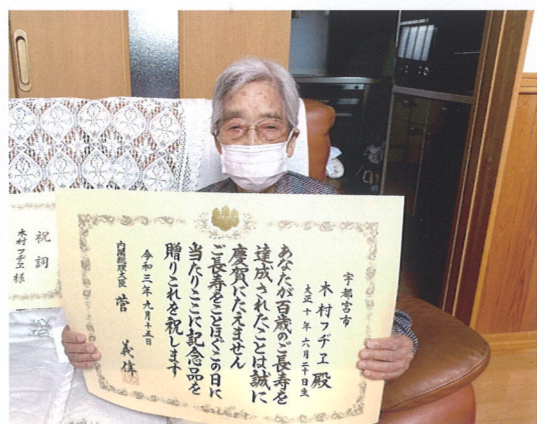 木村フヂヱ 殿
大正十年六月二十日生
あなたが百歳のご長寿を
達成されたことは誠に
慶賀にたえません
ご長寿をことほぐこの日に
当たりここに記念品を
贈りこれを祝します
令和三年九月十五日
内閣総理大臣 菅 義偉
祝詞
木村フヂヱ 様